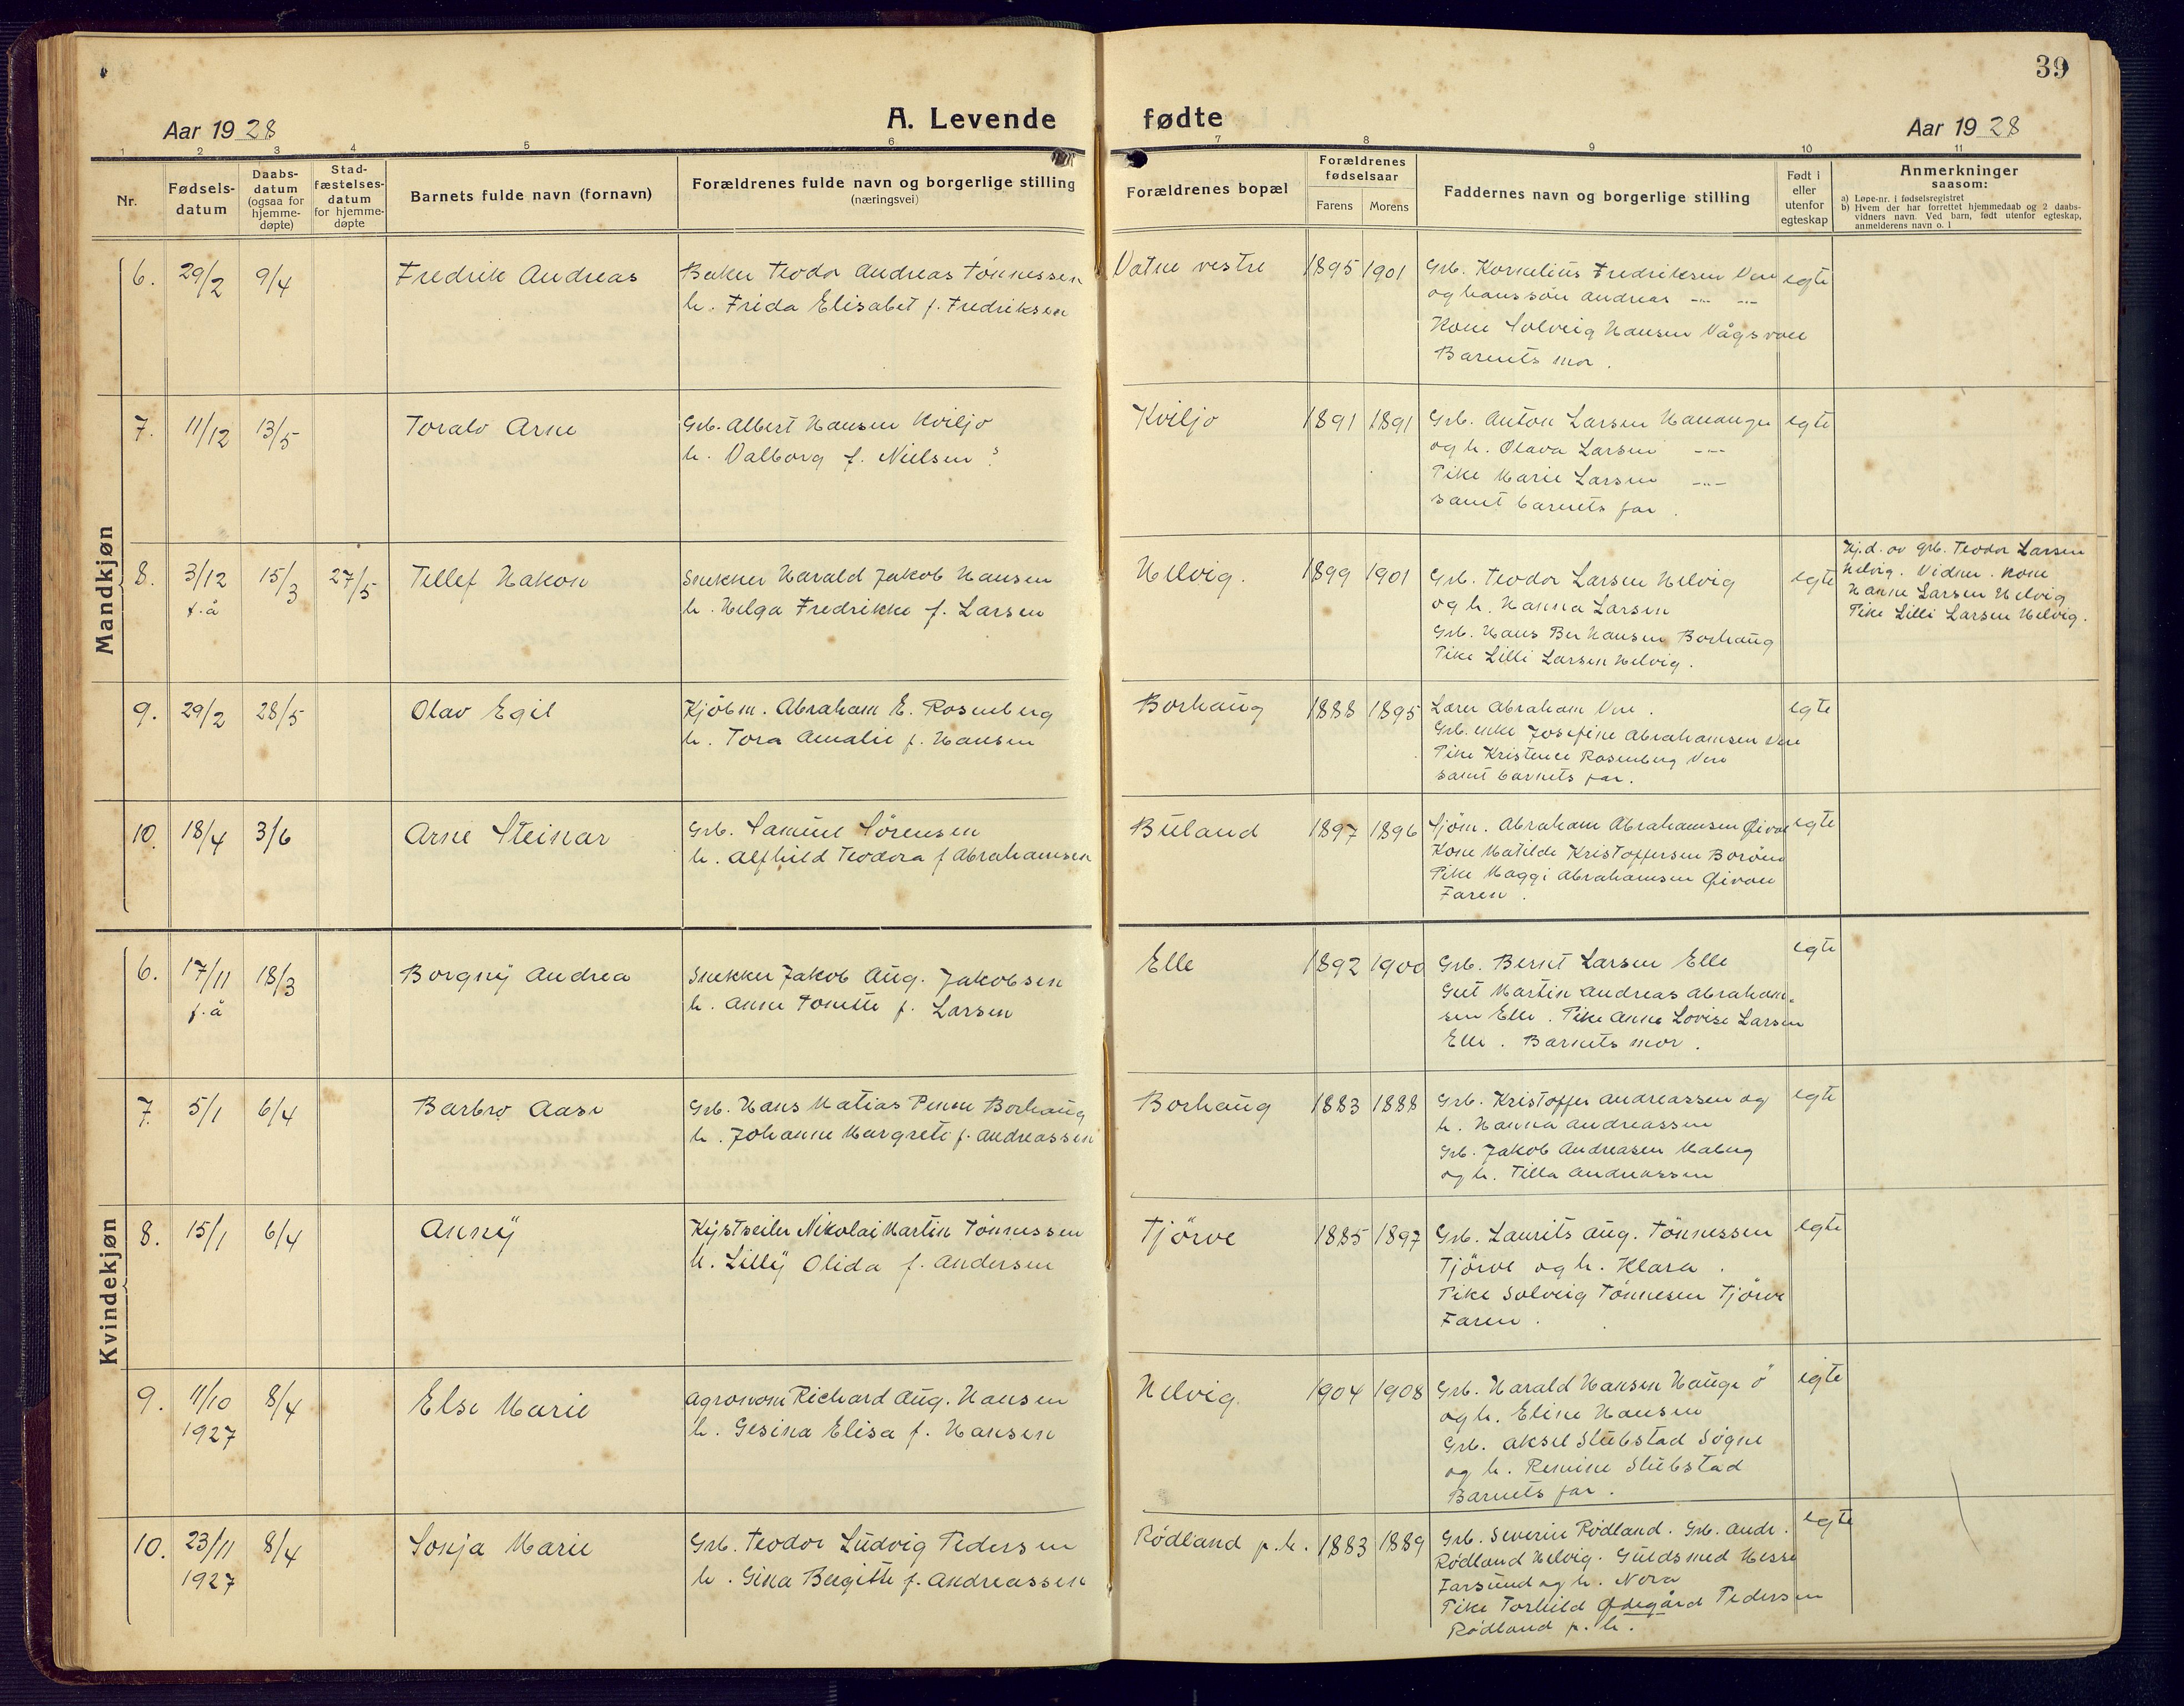 39
Aar 1928
A. Levende fødte
Aar 1928
1 2 3 4 5 6 7 8 9 10 11
Nr.
Fødsels-
datum
Daabs-
datum
(ogsaa for
hjemme-
døpte)
Stad-
fæstelses-
datum
for hjemme-
døpte
Barnets fulde navn (fornavn)
Forældrenes fulde navn og borgerlige stilling
(næringsvei)
Forældrenes bopæl
Forældrenes
fødselsaar
Farens Morens
Faddernes navn og borgerlige stilling
Født i
eller
utenfor
egteskap
Anmerkninger
saasom:
a) Løpe-nr. i fødselsregistret
b) Hvem der har forrettet hjemmedaab og 2 daabs-
vidners navn. Ved barn, født utenfor egteskap,
anmelderens navn o. l
Mandkjøn
6. 29/2 9/4 Fredrik Andreas
Baker Teodor Andreas Tönnessen
h. Frida Elisabet f. Fredriksen
Vatne vestre 1895 1901
Grb. Kornelius Fredriksen Vere
og hans sön Andreas -"- -"-
Kone Solveig Hansen Vågsvoll
Barnets mor.
egte
7. 11/12 13/5 Toralv Arne
Grb. Albert Hansen Kviljo
h. Valborg f. Nielsen ?
Kviljo 1891 1891
Grb. Anton Larsen Hananger
og h. Olava Larsen -"-
Pike Marie Larsen -"-
samt barnets far.
egte
8. 3/12 15/3 27/5 Tellef Hakon
f.å
Snekker Harald Jakob Hansen
h. Helga Fredrikke f. Larsen
Helvig. 1899 1901
Grb. Teodor Larsen Helvig
og h. Hanna Larsen
Grb. Hans Ber Hansen Borhaug
Pike Lilli Larsen Helvig.
egte
Hj.d. av grb. Teodor Larsen
Helvig. Vidner. Kone
Hanne Larsen Helvig
Pike Lilli Larsen Helvig.
9. 29/2 28/5 Olav Egil
Kjöbm. Abraham E. Rosenberg
h. Tora Amalie f. Hansen
Borhaug 1888 1895
Lærer Abraham Vere.
Grb. enke Josefine Abrahamsen Vere
Pike Kristence Rosenberg Vere
samt barnets far.
egte
10. 18/4 3/6 Arne Steinar
Grb. Samuel Sörensen
h. Alfhild Teodora f Abrahamsen
Buland 1897 1896
Sjöm. Abraham Abrahamsen
Kone Matilde Kristoffersen
Pike Maggi Abrahamsen
Faren.
egte
Kvindekjøn
6. 17/11 18/3 Borgny Andrea
f.å
Snekker Jakob Aug. Jakobsen
h. Anne Tonette f. Larsen
Elle 1892 1900
Grb. Bernt Larsen Elle
Gut Martin Andreas Abraham-
sen Elle. Pike Anna Lovise Larsen
Elle. Barnets mor.
egte
7. 5/1 6/4 Barbro Aase
Grb. Hans Matias Penne Borhaug
h. Johanne Margrete f. Andreassen
Borhaug 1883 1888
Grb. Kristoffer Andreassen og
h. Hanna Andreassen
Grb. Jakob Andreasen Maberg
og h. Tilla Andreassen
egte
8. 15/1 6/4 Anny
Kystseiler Nikolai Martin Tönnessen
h. Lilly Olida f. Andersen
Tjörve 1885 1897
Grb. Laurits Aug. Tönnessen
Tjörve og h. Klara.
Pike Solveig Tönnesen Tjörve
Faren.
egte
9. 11/10 8/4 Else Marie
1927
Agronom Richard Aug. Hansen
h. Gesina Elisa f. Hansen
Helvig. 1904 1908
Grb. Harald Hansen Hauge ö
og h. Eline Hansen
Grb. Aksel Stubstad Søgne
og h. Remine Stubstad
Barnets far.
egte
10. 23/11 8/4 Sonja Marie
1927
Grb. Teodor Ludvig Pedersen
h. Gina Bergitte f. Andreassen
Rødland p.h. 1883 1889
Grb. Severin Rødland. Grb. Andr.
Rødland Helvig. Guldsmed Hesse
Farsund og h. Nora
Pike Torhild Ødegård Pedersen
Rødland p.h.
egte